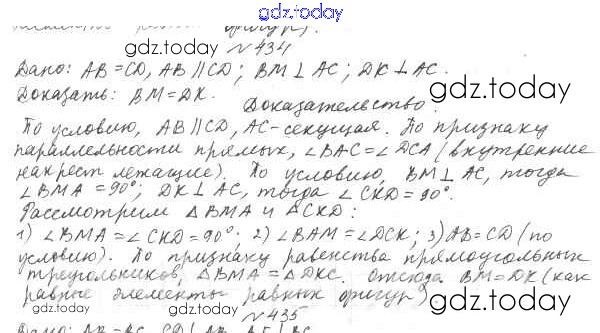 gdz.today
фигур).
gdz.today
№434
gdz.today
Дано: AB=CD, AB∥CD; BM⊥AC; DK⊥AC.
Доказать: BM=DK.
Доказательство:
По условию, AB∥CD, AC-секущая. По признаку
параллельности прямых, ∠BAC=∠DCA (внутренние
накрест лежащие). По условию, BM⊥AC, тогда
∠BMA=90°; DK⊥AC, тогда ∠CKD=90°.
gdz.today
gdz.today
Рассмотрим △BMA и △CKD:
1) ∠BMA=∠CKD=90°; 2) ∠BAM=∠DCK; 3) AB=CD (по
условию). По признаку равенства прямоугольных
треугольников, △BMA=△DKC. Отсюда BM=DK (как
равные элементы равных фигур)
gdz.today
gdz.today
№435
Дано: